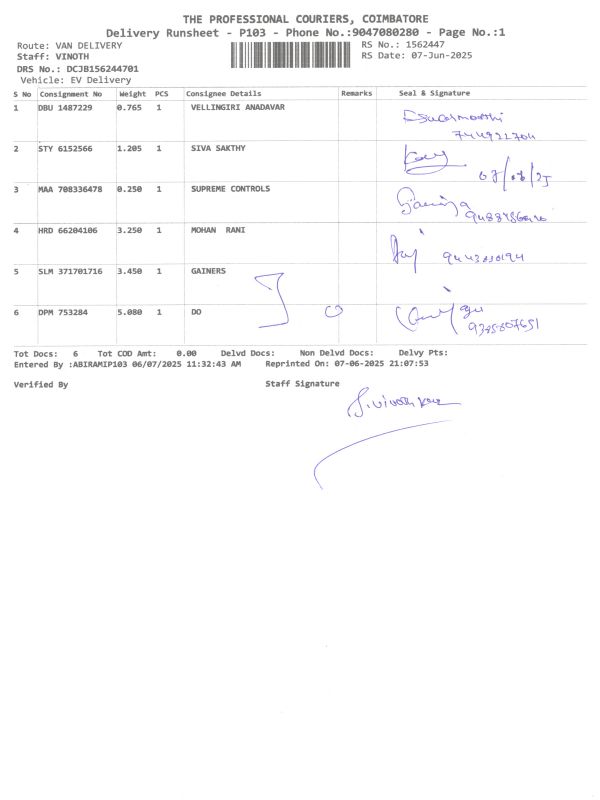 THE PROFESSIONAL COURIERS, COIMBATORE
Delivery Runsheet - P103 - Phone No.:9047080280 - Page No.:1
Route: VAN DELIVERY RS No.: 1562447
Staff: VINOTH RS Date: 07-Jun-2025
DRS No.: DCJB156244701
Vehicle: EV Delivery
S No Consignment No Weight PCS Consignee Details Remarks Seal & Signature
1 DBU 1487229 0.765 1 VELLINGIRI ANADAVAR
7449222704
2 STY 6152566 1.205 1 SIVA SAKTHY
3 MAA 708336478 0.250 1 SUPREME CONTROLS
4 HRD 66204106 3.250 1 MOHAN RANI
5 SLM 371701716 3.450 1 GAINERS
6 DPM 753284 5.080 1 DO
9385807651
Tot Docs: 6 Tot COD Amt: 0.00 Delvd Docs: Non Delvd Docs: Delvy Pts:
Entered By :ABIRAMIP103 06/07/2025 11:32:43 AM Reprinted On: 07-06-2025 21:07:53
Verified By Staff Signature